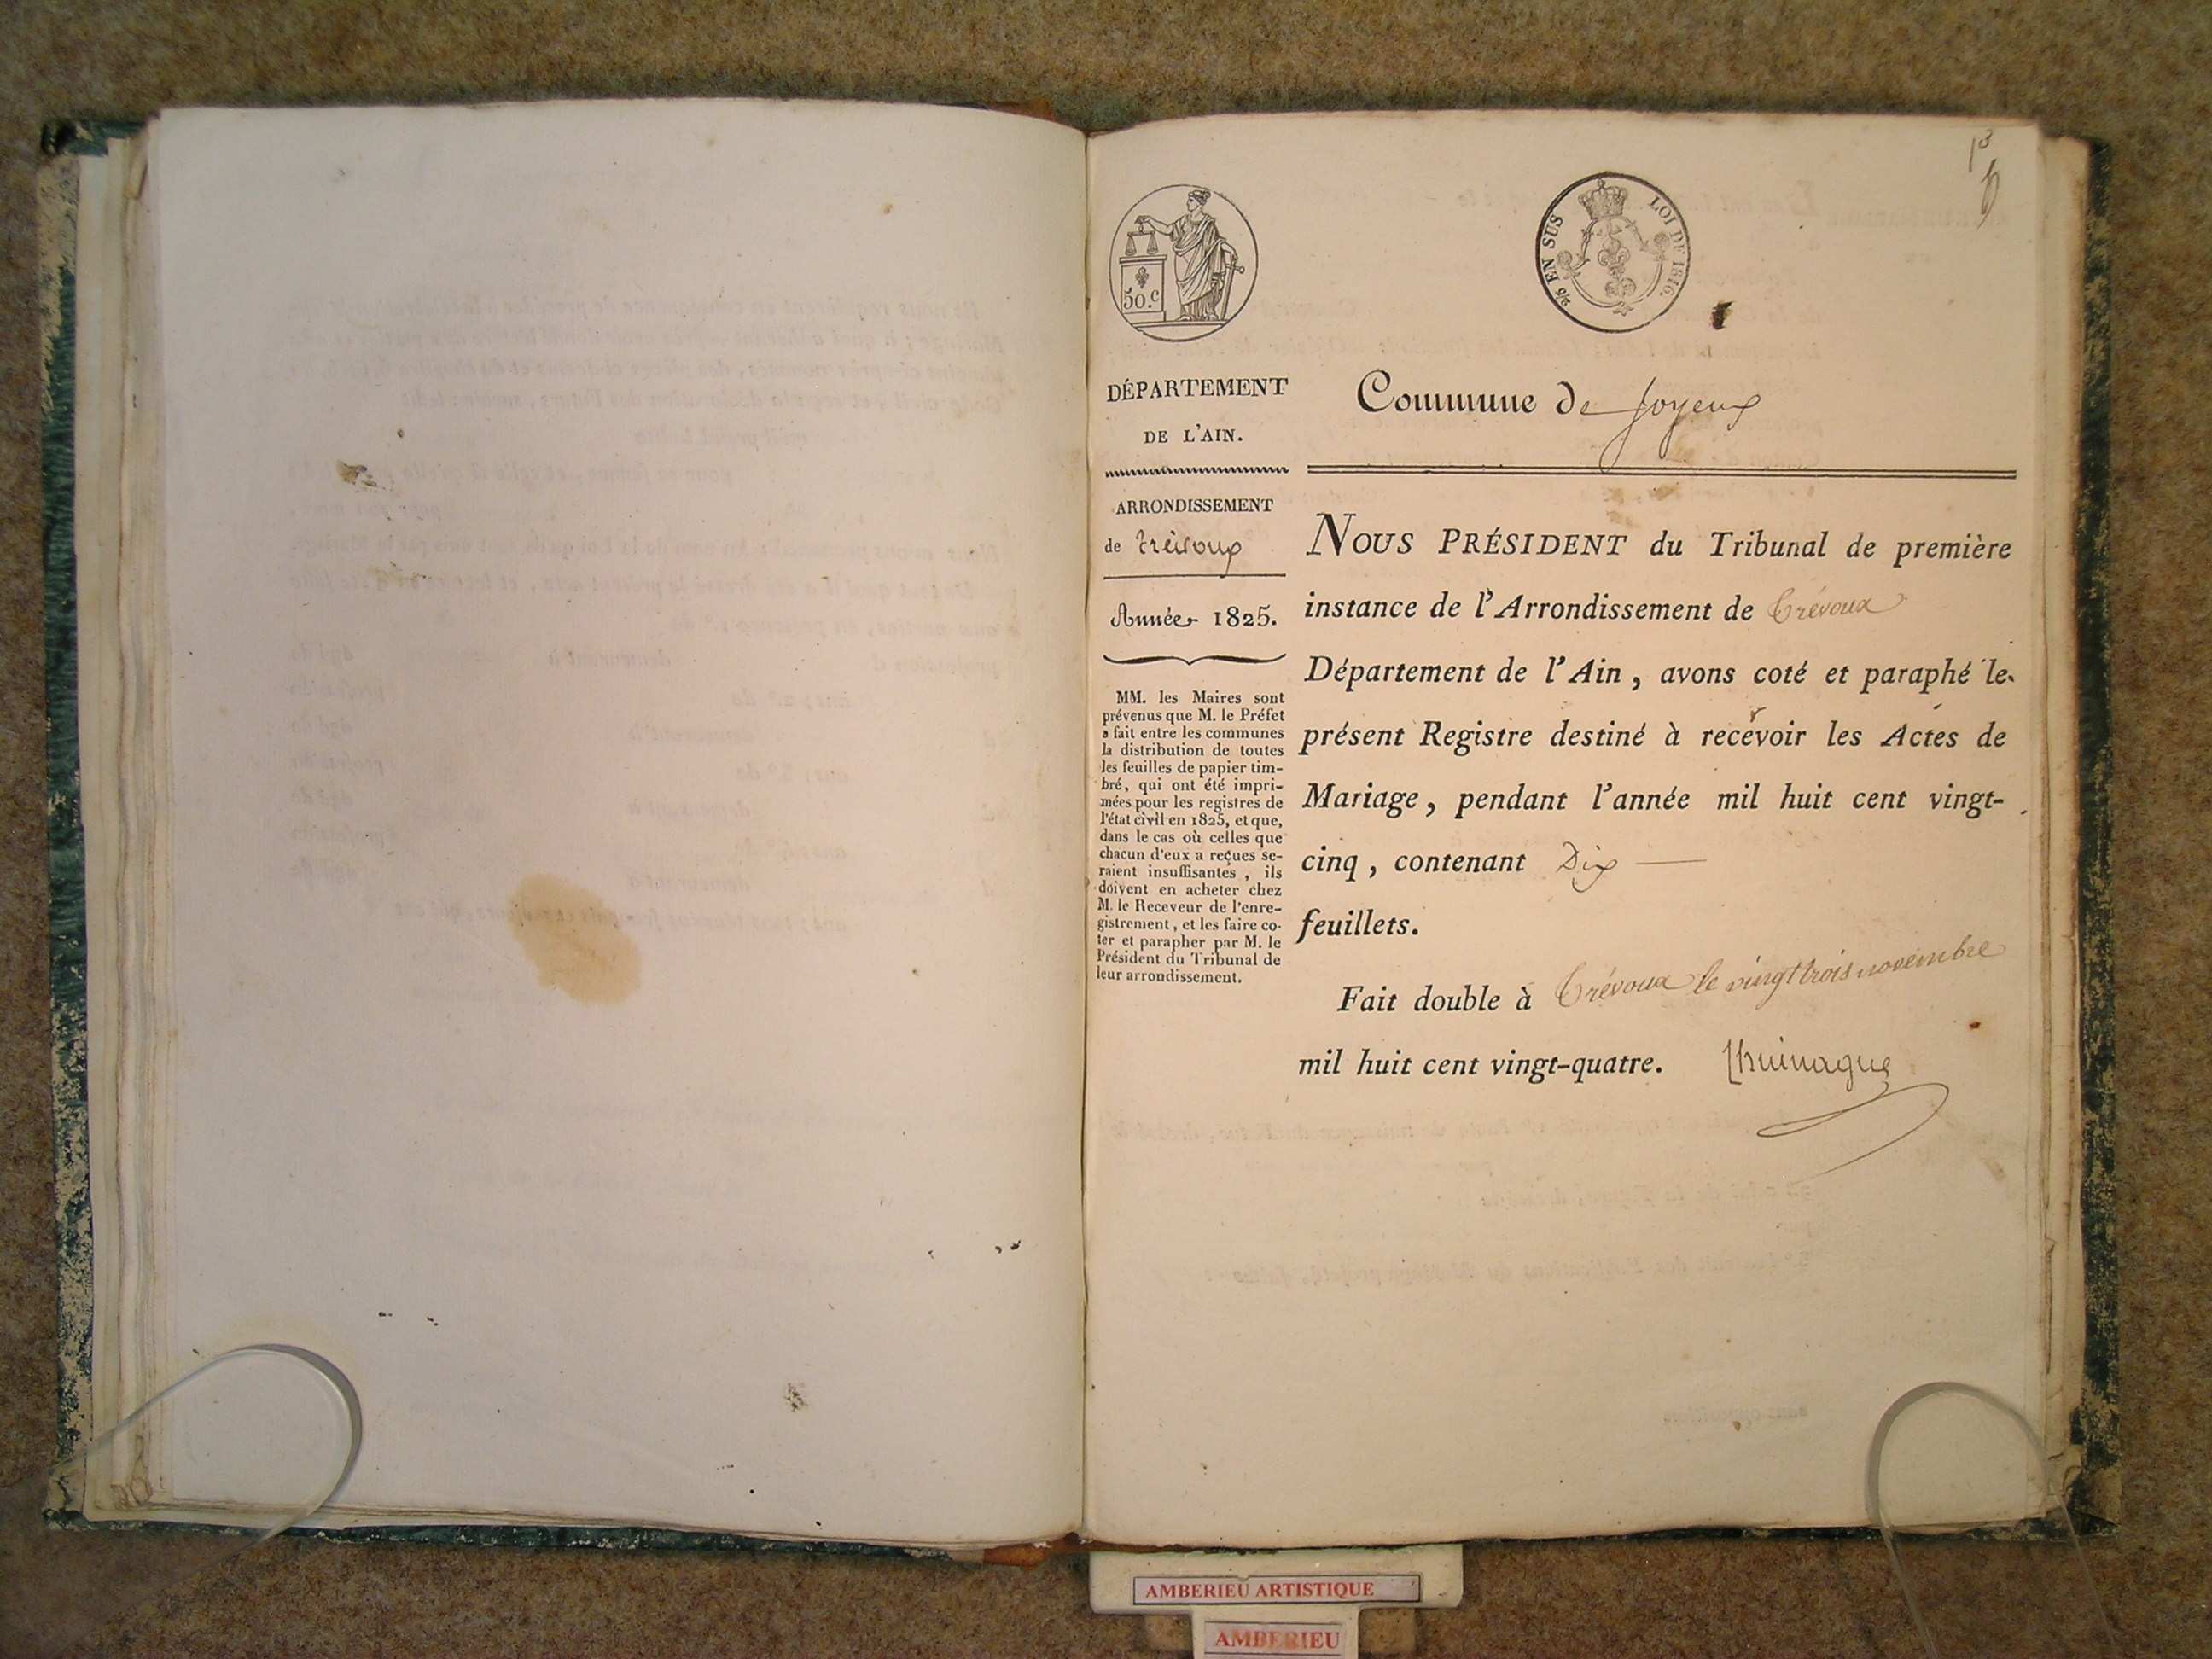 50.c
2/5 EN SUS
LOI DE 1816.
DÉPARTEMENT
DE L'AIN.
ARRONDISSEMENT
de trévoux
Année 1825.
MM. les Maires sont
prévenus que M. le Préfet
a fait entre les communes
la distribution de toutes
les feuilles de papier tim-
bré, qui ont été impri-
mées pour les registres de
l'état civil en 1825, et que,
dans le cas où celles que
chacun d'eux a reçues se-
raient insuffisantes, ils
doivent en acheter chez
M. le Receveur de l'enre-
gistrement, et les faire co-
ter et parapher par M. le
Président du Tribunal de
leur arrondissement.
Commune de Joyeux
NOUS PRÉSIDENT du Tribunal de première
instance de l'Arrondissement de Trévoux
Département de l'Ain, avons coté et paraphé le
présent Registre destiné à recevoir les Actes de
Mariage, pendant l'année mil huit cent vingt-
cinq, contenant Dix
feuillets.
Fait double à Trévoux le vingt trois novembre
mil huit cent vingt-quatre.
AMBERIEU ARTISTIQUE
AMBERIEU